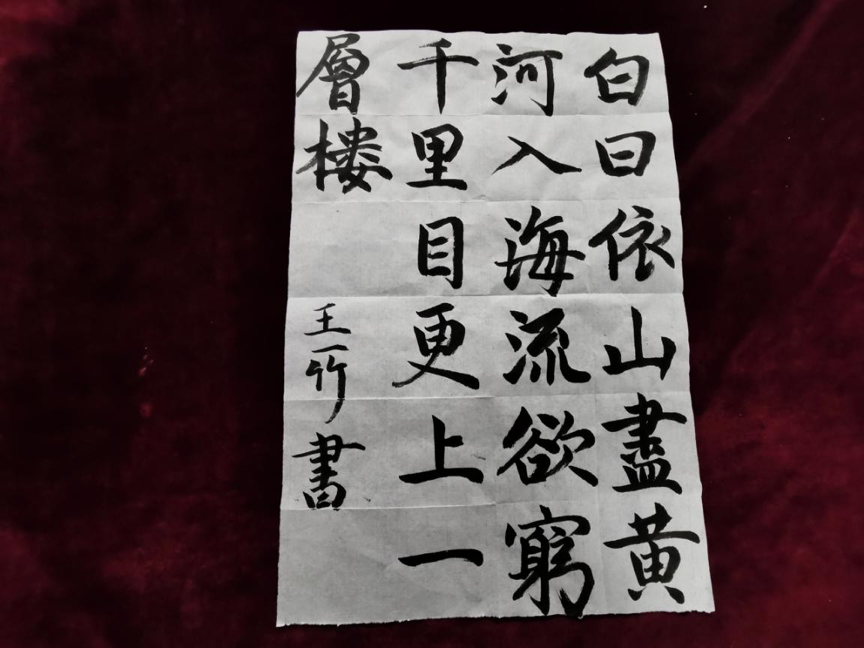 白日依山盡黄
河入海流欲窮
千里目更上一
層樓
王一竹書